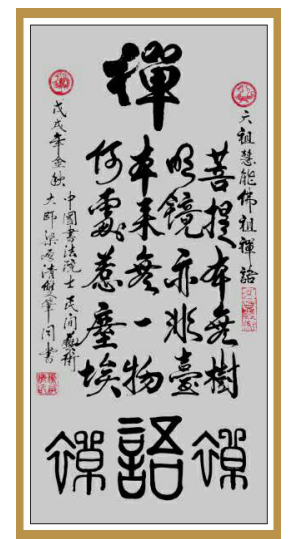 禪
六祖慧能佛祖禪語
菩提本無樹
明鏡亦非臺
本來無一物
何處惹塵埃
戊戌年金秋
中國書法院士民間藝術
大師梁
書
語